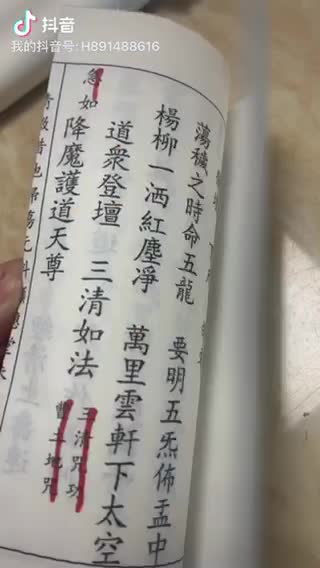 抖音
我的抖音号: H891488616
蕩穢之時命五龍 要明五炁佈盂中
楊柳一洒紅塵淨 萬里雲軒下太空
道衆登壇 三清如法
急如
降魔護道天尊
三清咒
土地咒